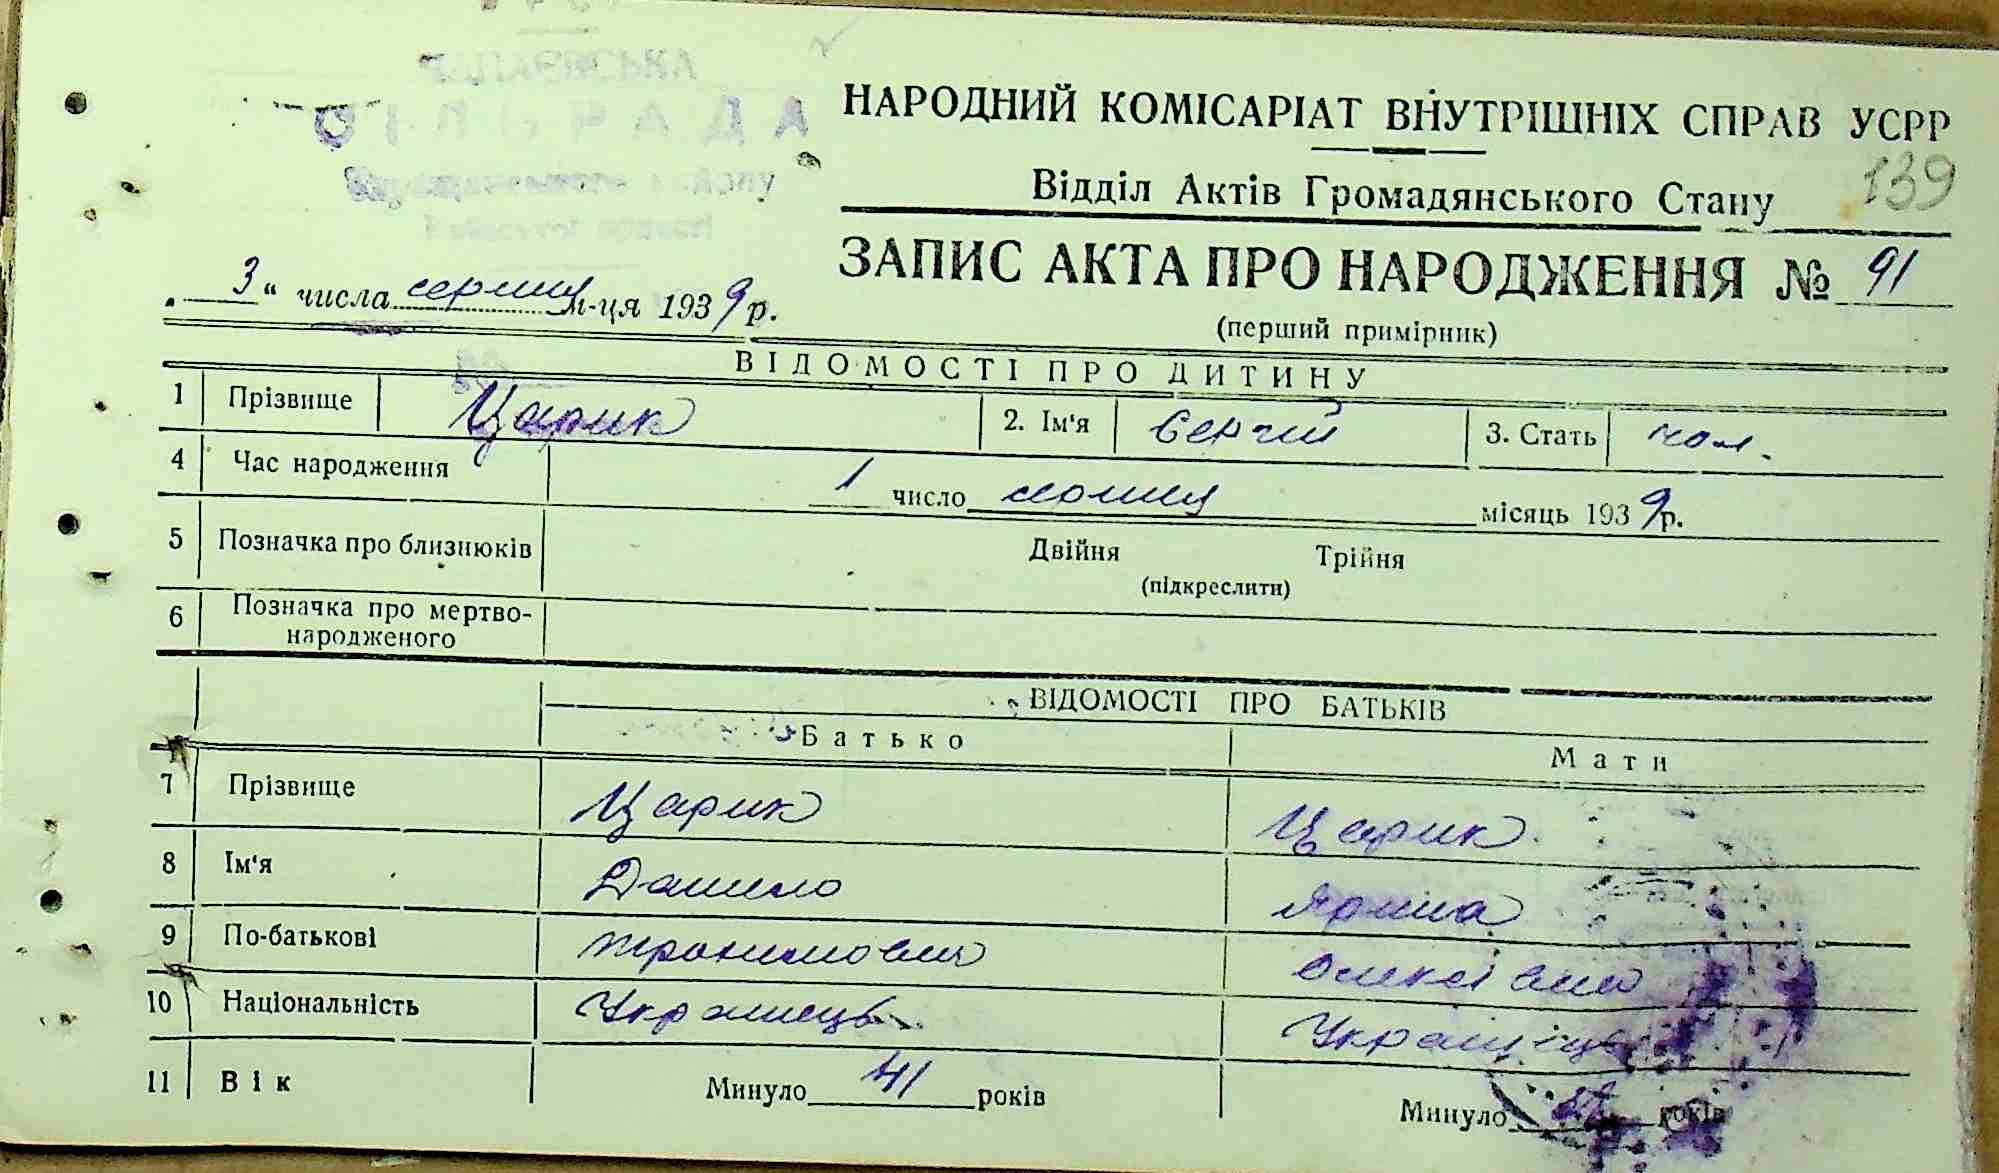 ЧАПАЄВСЬКА
СІЛЬРАДА
району
НАРОДНИЙ КОМІСАРІАТ ВНУТРІШНІХ СПРАВ УСРР
139
Відділ Актів Громадянського Стану
ЗАПИС АКТА ПРО НАРОДЖЕННЯ № 91
„ 3 “ числа серпня м-ця 1939 р.
(перший примірник)
ВІДОМОСТІ ПРО ДИТИНУ
1 Прізвище Царик 2. Ім'я Сергій 3. Стать чол.
4 Час народження 1 число серпня місяць 1939 р.
5 Позначка про близнюків Двійня Трійня
(підкреслити)
6 Позначка про мертво-
народженого
ВІДОМОСТІ ПРО БАТЬКІВ
Батько Мати
7 Прізвище Царик Царик
8 Ім'я Данило Ярина
9 По-батькові Трохимович Олексіївна
10 Національність Українець Українець
11 Вік Минуло 41 років Минуло років